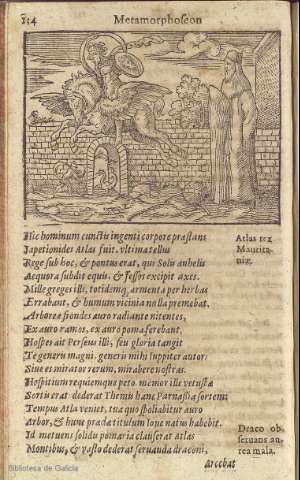 114
Metamorphoseon
Hic hominum cunctis ingenti corpore præstans
Iapetionides Atlas fuit. vltima tellus
Rege sub hoc, & pontus erat, qui Solis anhelis
Aequora subdit equis, & fessos excipit axes.
Mille greges illi, totidemq; armenta per herbas
Errabant, & humum vicinia nulla premebat.
Arboreæ frondes auro radiante nitentes,
Ex auro ramos, ex auro poma ferebant.
Hospes ait Perseus illi, seu gloria tangit
Te generis magni. generis mihi Iuppiter autor:
Siue es mirator rerum, mirabere nostras.
Hospitium requiemque peto. memor ille vetustæ
Sortis erat dederat Themis hanc Parnasia sortem:
Tempus Atla veniet, tua quo spoliabitur auro
Arbor, & hunc prædæ titulum Ioue natus habebit.
Id metuens solidis pomaria clauserat Atlas
Montibus, & vasto dederat seruanda draconi,
Atlas rex
Mauritaniæ.
Draco obseruans
aurea mala.
Arcebat
Biblioteca de Galicia